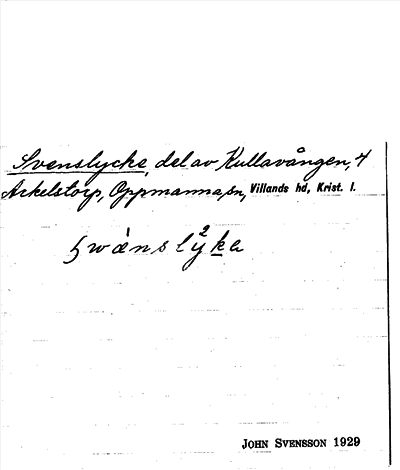 Svenslycke, del av Kullavången, 4
Arkelstorp, Oppmanna sn, Villands hd, Krist. l.
swènslýka
John Svensson 1929